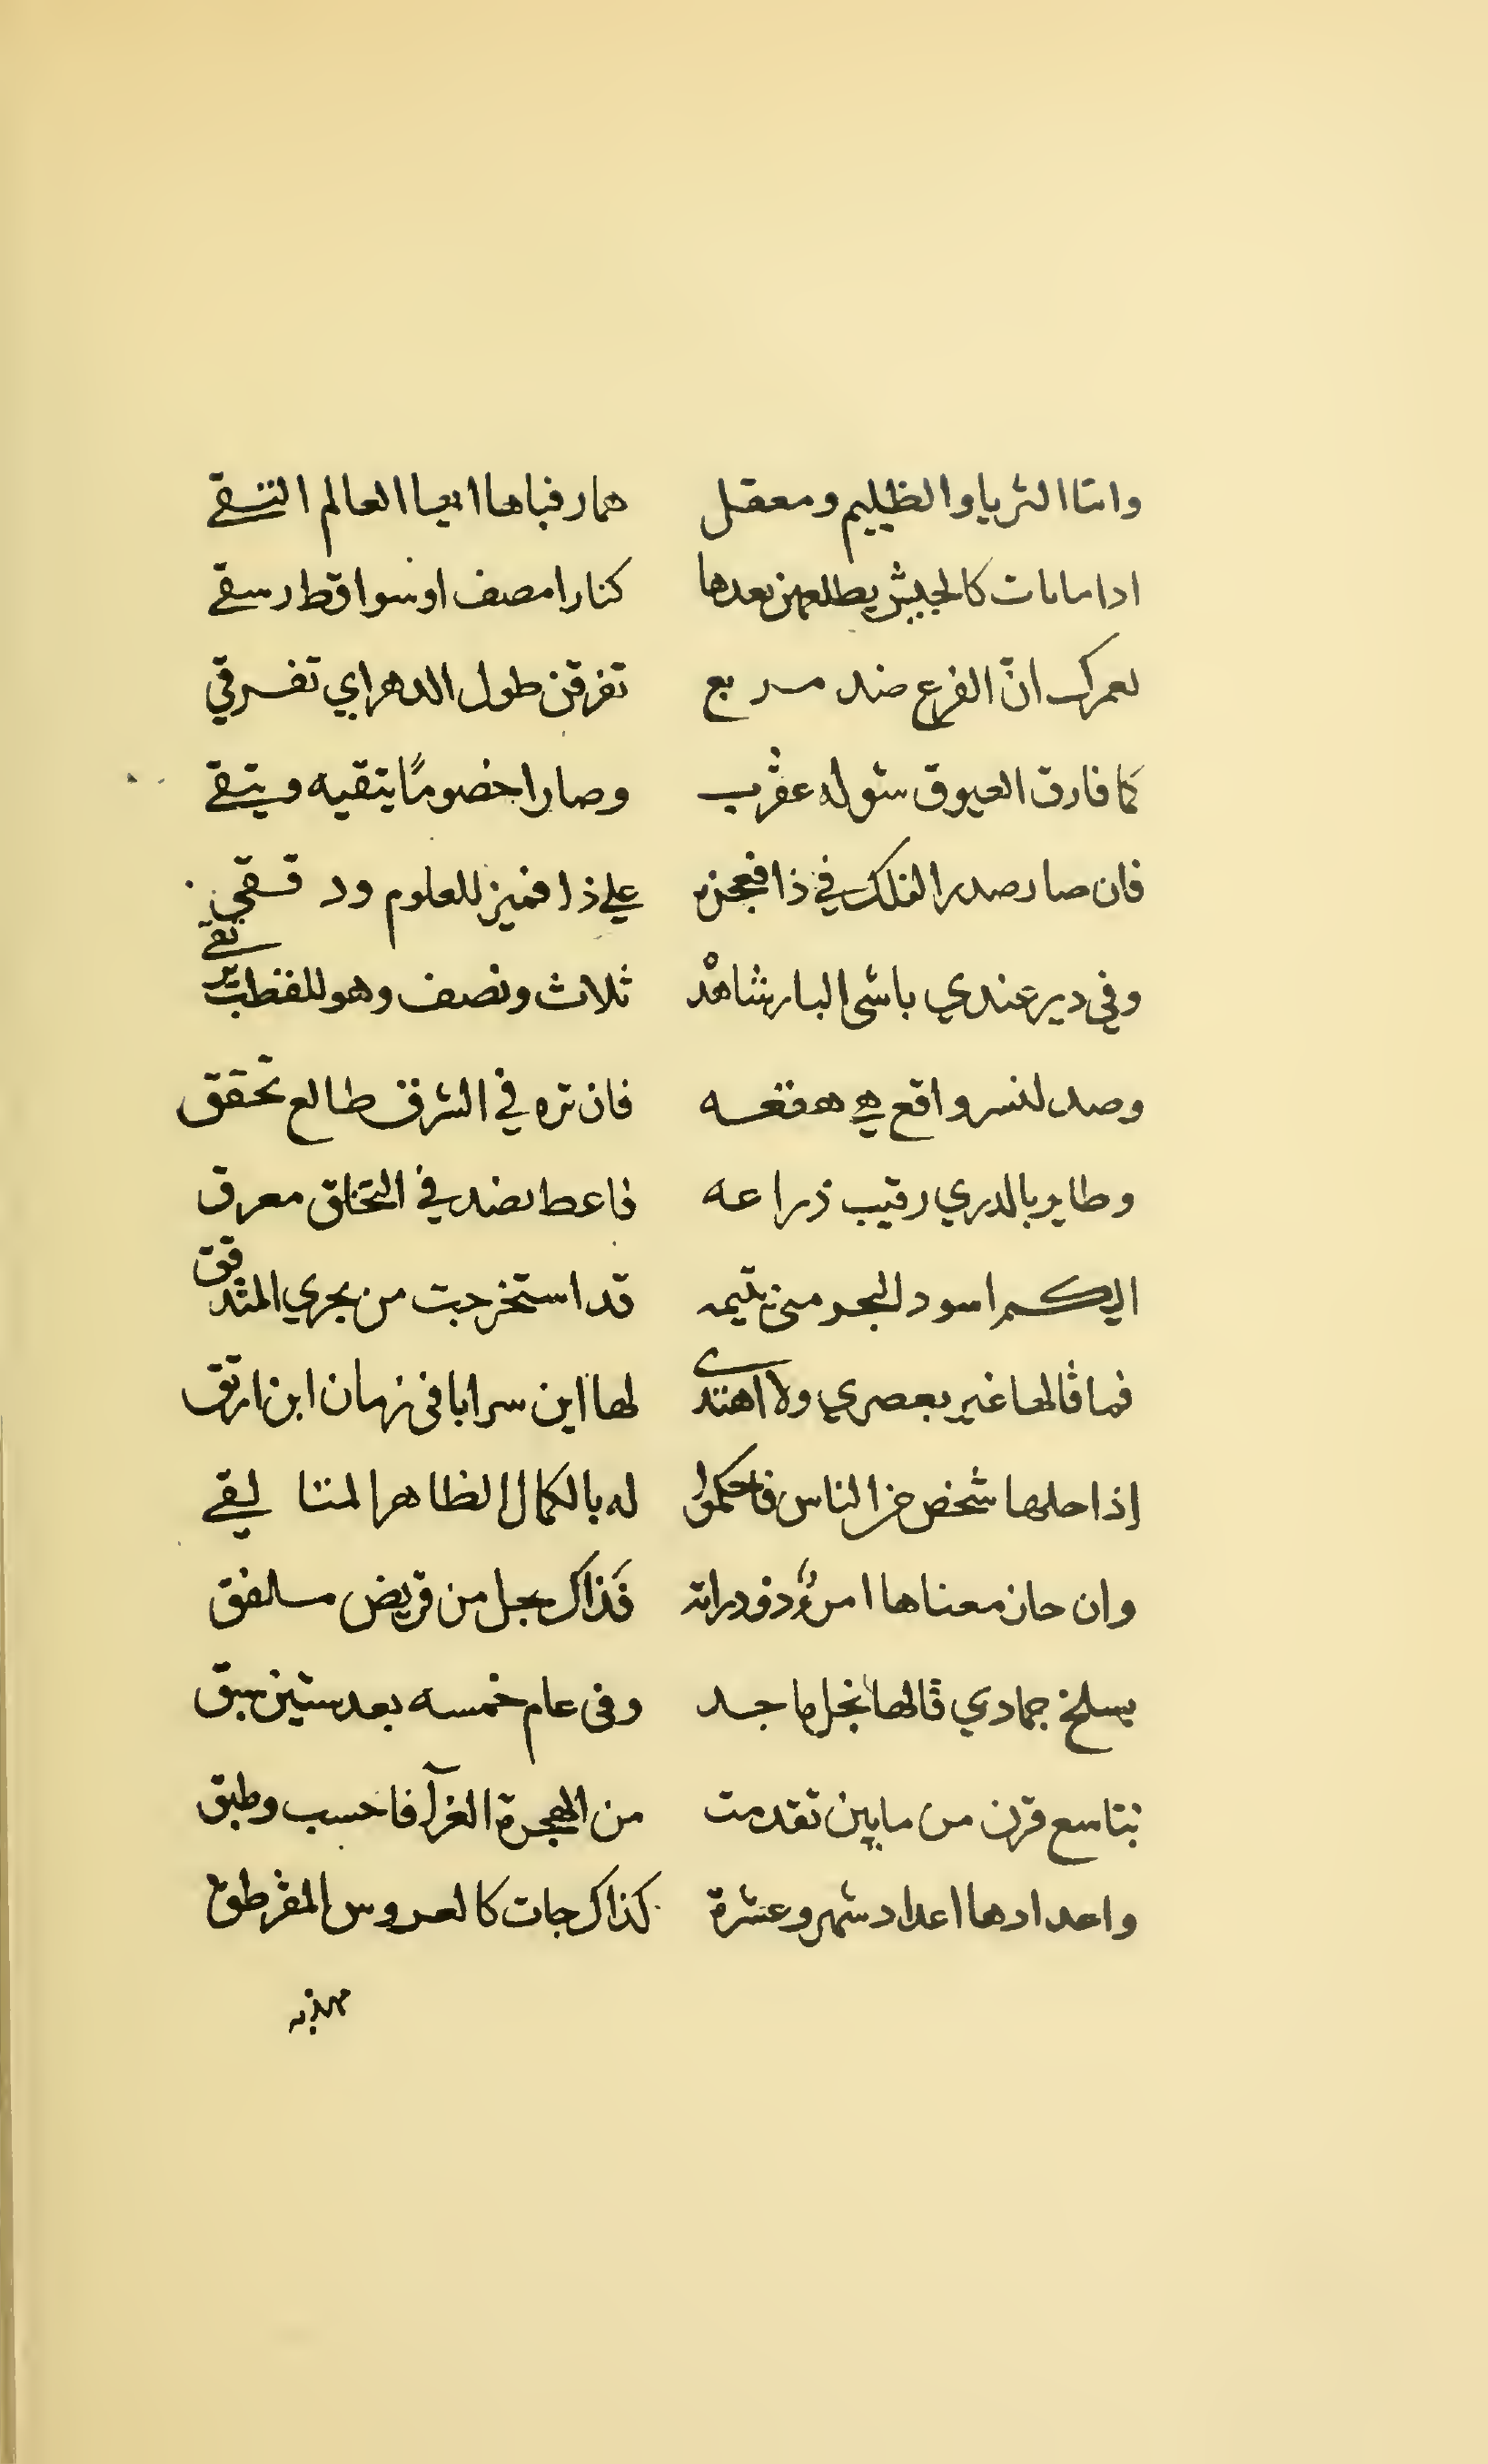 وامّا الثريا والظليم ومعقل همارقباها ايها العالم التقي
اداماىات كالجيش يطلعهن بعدها كنارا مصف اوسواقط رسقي
لعمرك انّ الفرع ضد مربع تفرقن طول الدهر اي تفرقي
كما فارق العيوق شوله عقرب وصارا خضومًا يتقيه ويتقي
فان صار صدر الفلك في ذا فبحزه علي ذا فميز للعلوم ودققي
وفي دير عندي باشى البار شاهد ثلاث ونصف وهو للقطب يرتقي
وضد لنسر واقع هي هقعه فان تره في الشرق طالع تحقق
وطاير بالدري رقيب ذراعه فاعط لضد في التخالق معرق
اليكم اسود البحر مني يتيمه قد استخرجت من بحري المتدفق
فما قالها غير بعصري ولا اهتدى لها اين سرابا في زمان ابن ارتق
إذا حلها شخص من الناس فاحكموا له بالكمال الظاهر المتا لقي
وان حاز معناها امرؤ ذو دراية فذاك بجل من قريض مسلفق
بسلخ جمادي قالها نجل ماجد وفي عام خمسه بعد ستين سبق
بتاسع قرن من مايين تقدمت من الهجرة الغرآ فاحسب وطبق
واعدادها اعداد شهر وعشرة كذاك جات كالعروس المقرطق